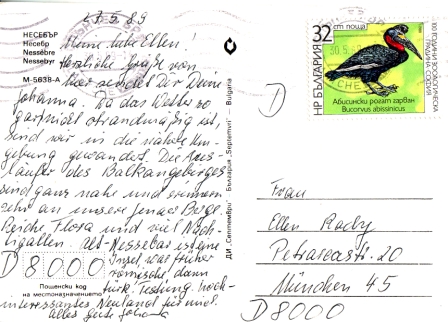 23.5.89
НЕСЕБЪР
Несебр
Nessèbre
Nessebyr
М-5638-А
Meine liebe Ellen!
Herzliche Grüße von
hier sendet Dir Deine
Johanna. Da das Wetter so
garnicht strandmäßig ist,
sind wir in die nähere Um-
gebung gewandert. Die Aus-
läufer des Balkangebirges
sind ganz nahe und erinnern
sehr an unsere Jenaer Berge.
Reiche Flora und viel Nach-
tigallen. Alt-Nessebar ist eine
Insel war früher
römische, dann
türk. Festung. Hoch-
interessantes Neuland für mich.
Alles Gute Johanna
D 8000
Пощенски код
на местоназначението
ДИ „Септември" България „Септември" Bulgaria
32 ст поща
БЪЛГАРИЯ
Абисински рогат гарван
Bucorvus abissinicus
100 ГОДИНИ ЗООЛОГИЧЕСКА
ГРАДИНА СОФИЯ
30.5.89
D
Frau
Ellen Raedy
Petrarcastr. 20
München 45
D 8000